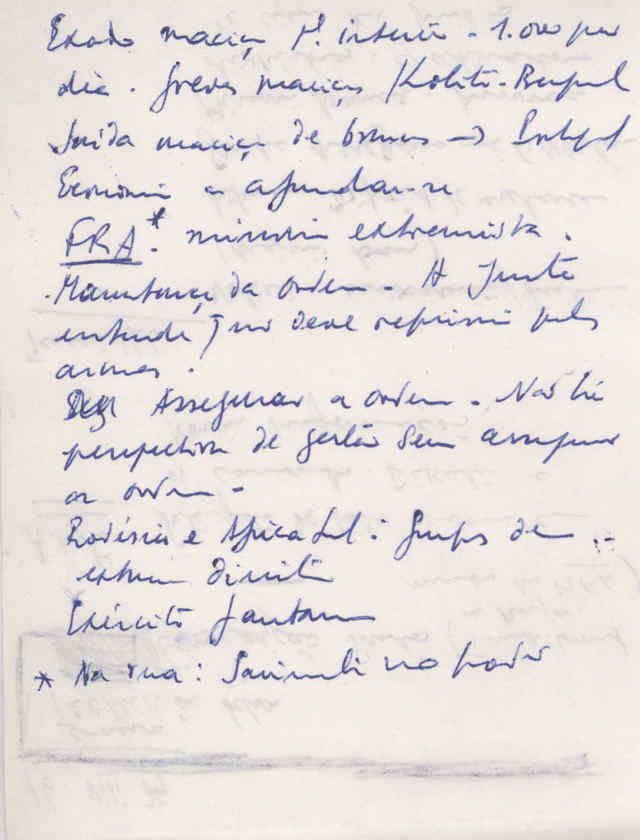 Êxodo maciço p.ª interior - 1.000 por
dia. Greves maciças /Lobito-Benguel
Saída maciça de brancos → Portugal
Economia a afundar-se
FRA*. minoria extremista.
. Manutenção da ordem - A Junta
entende q não deve reprimir pelas
armas.
Assegurar a ordem - Não há
perspectiva de gestão sem assegurar
a ordem -
Rodésia e África Sul: grupos de
extrema direita
Exército fantasma
* Na rua: Savimbi no poder